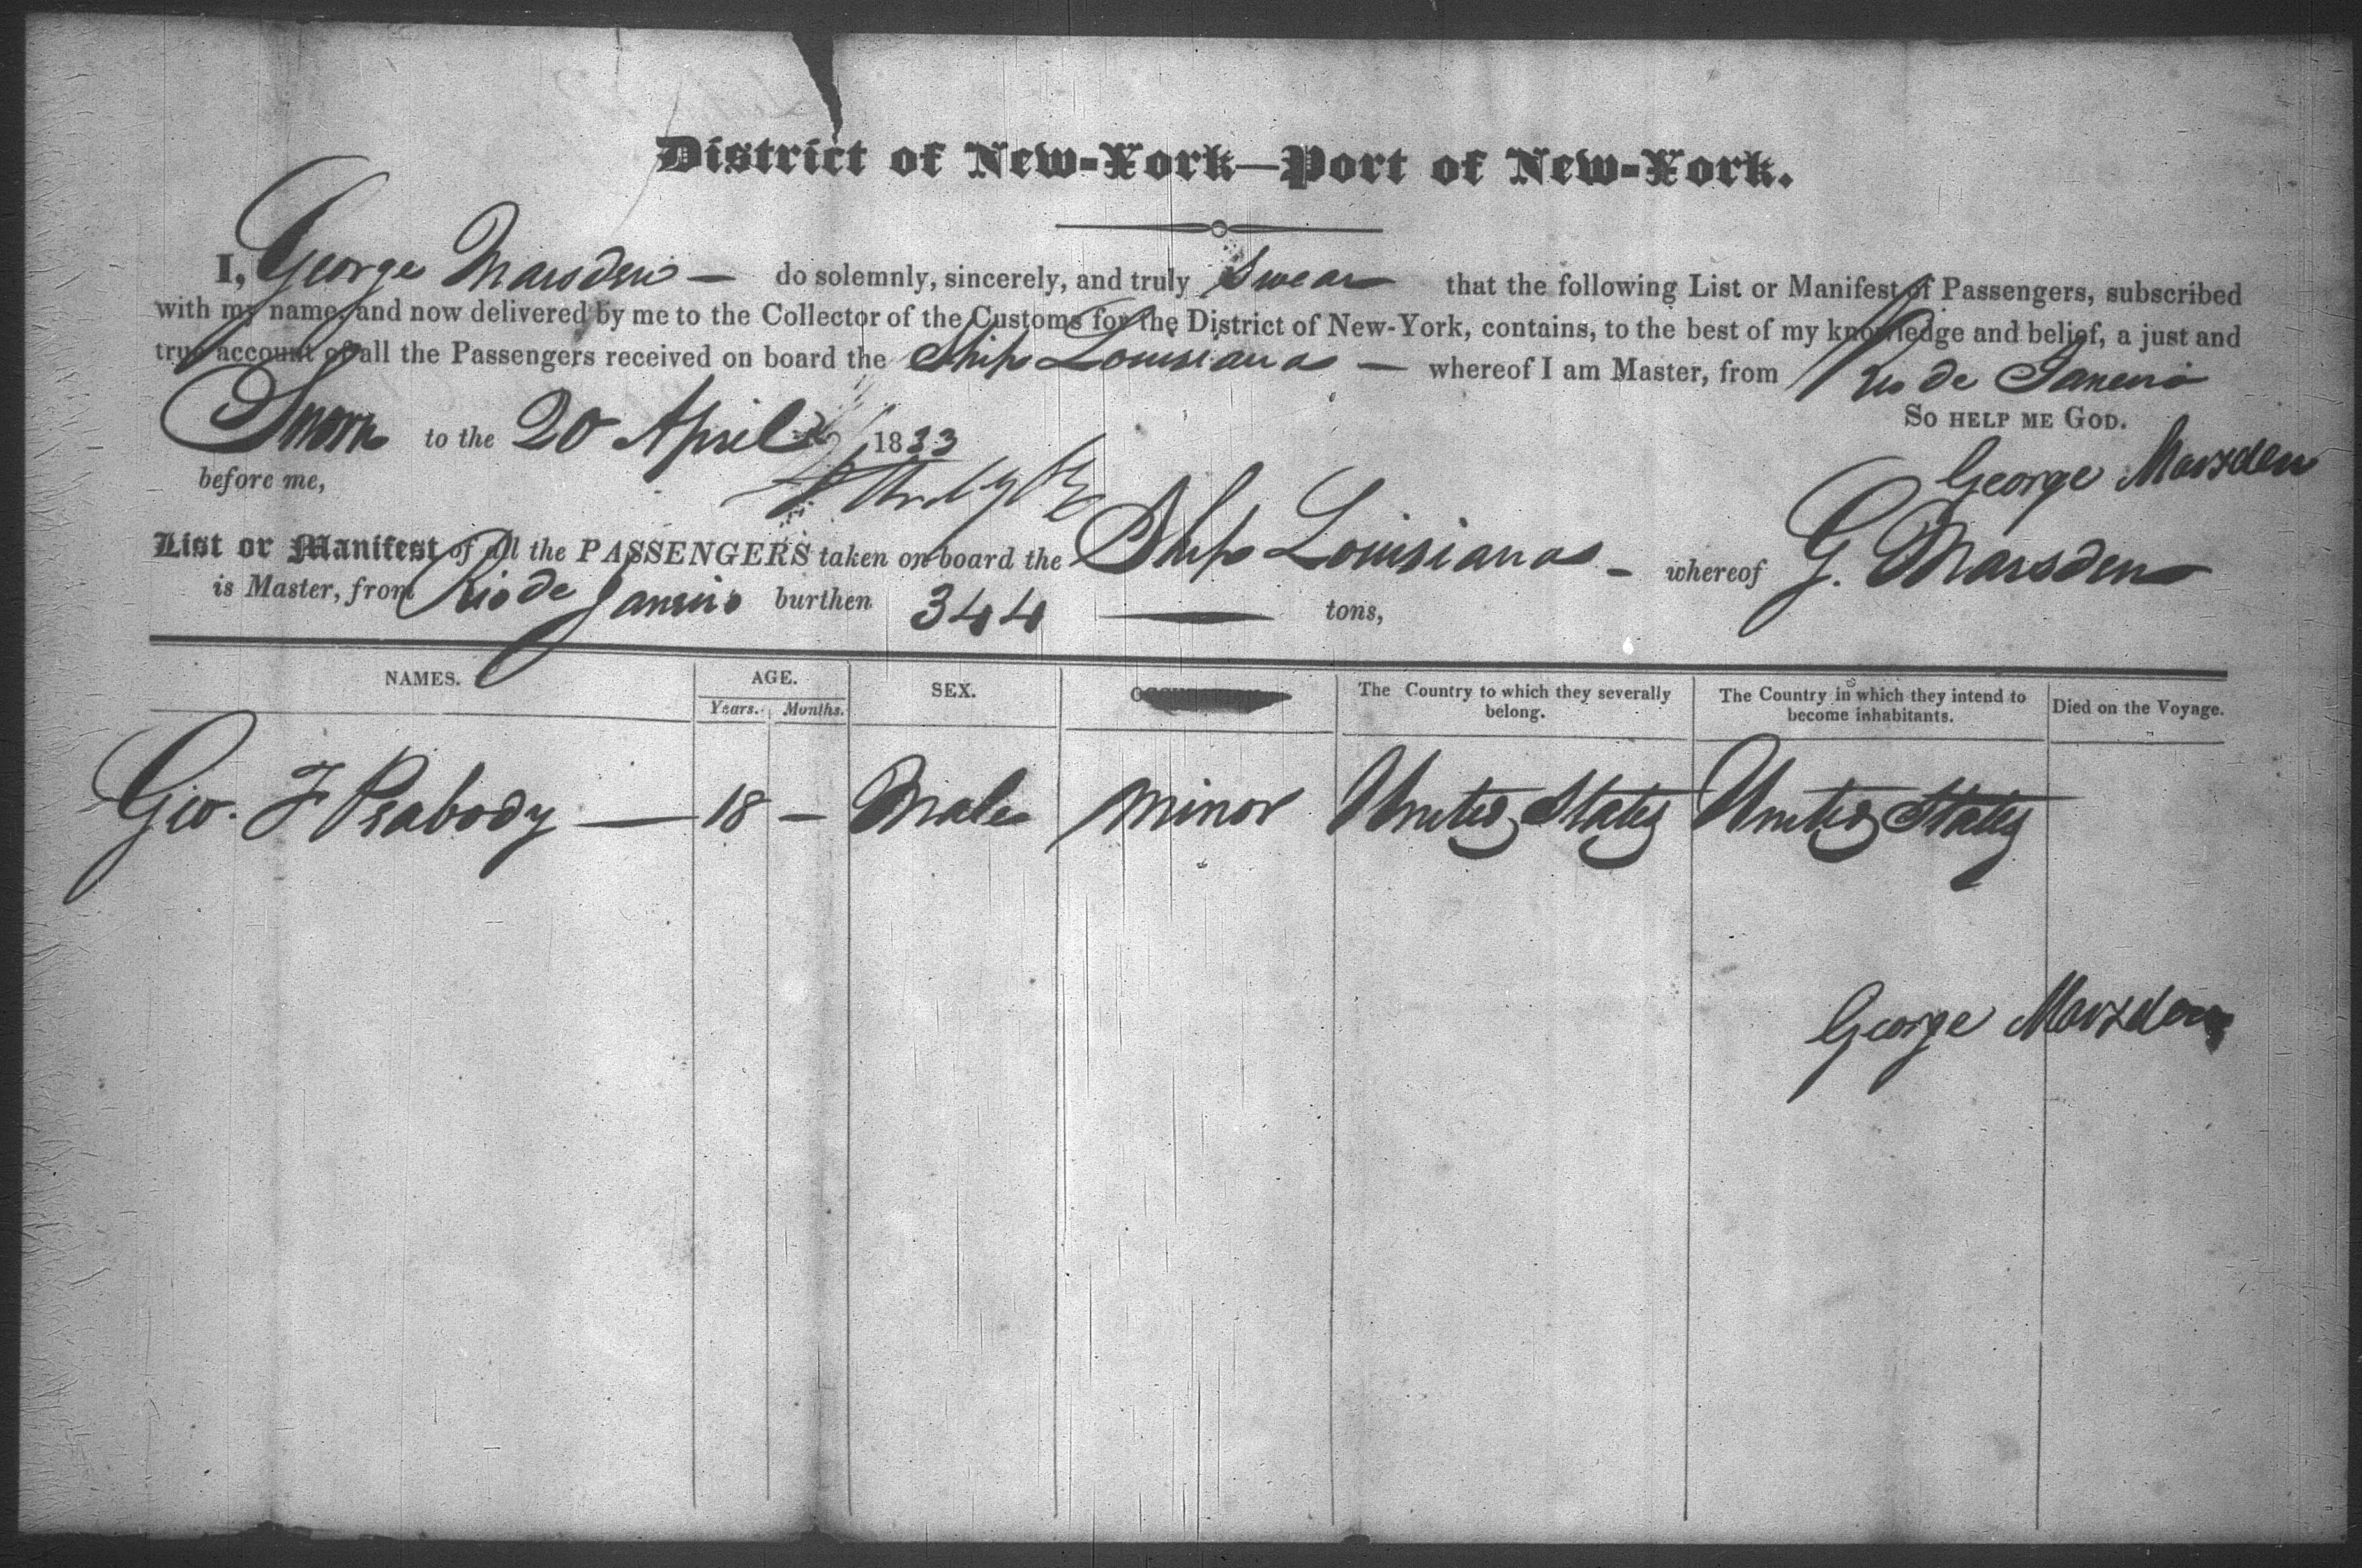 District of New-York—Port of New-York.
I, George Marsden — do solemnly, sincerely, and truly Swear that the following List or Manifest of Passengers, subscribed
with my name, and now delivered by me to the Collector of the Customs for the District of New-York, contains, to the best of my knowledge and belief, a just and
true account of all the Passengers received on board the Ship Louisiana — whereof I am Master, from Rio de Janeiro
So help me God.
Sworn to the 20 April 1833
George Marsden
before me,
List or Manifest of all the PASSENGERS taken on board the Ship Louisiana — whereof G. Marsden
is Master, from Rio de Janeiro burthen 344 — tons,
NAMES. AGE. Years. Months. SEX. The Country to which they severally belong. The Country in which they intend to become inhabitants. Died on the Voyage.
Geo. F Peabody — 18 — Male Minor United States United States
George Marsden